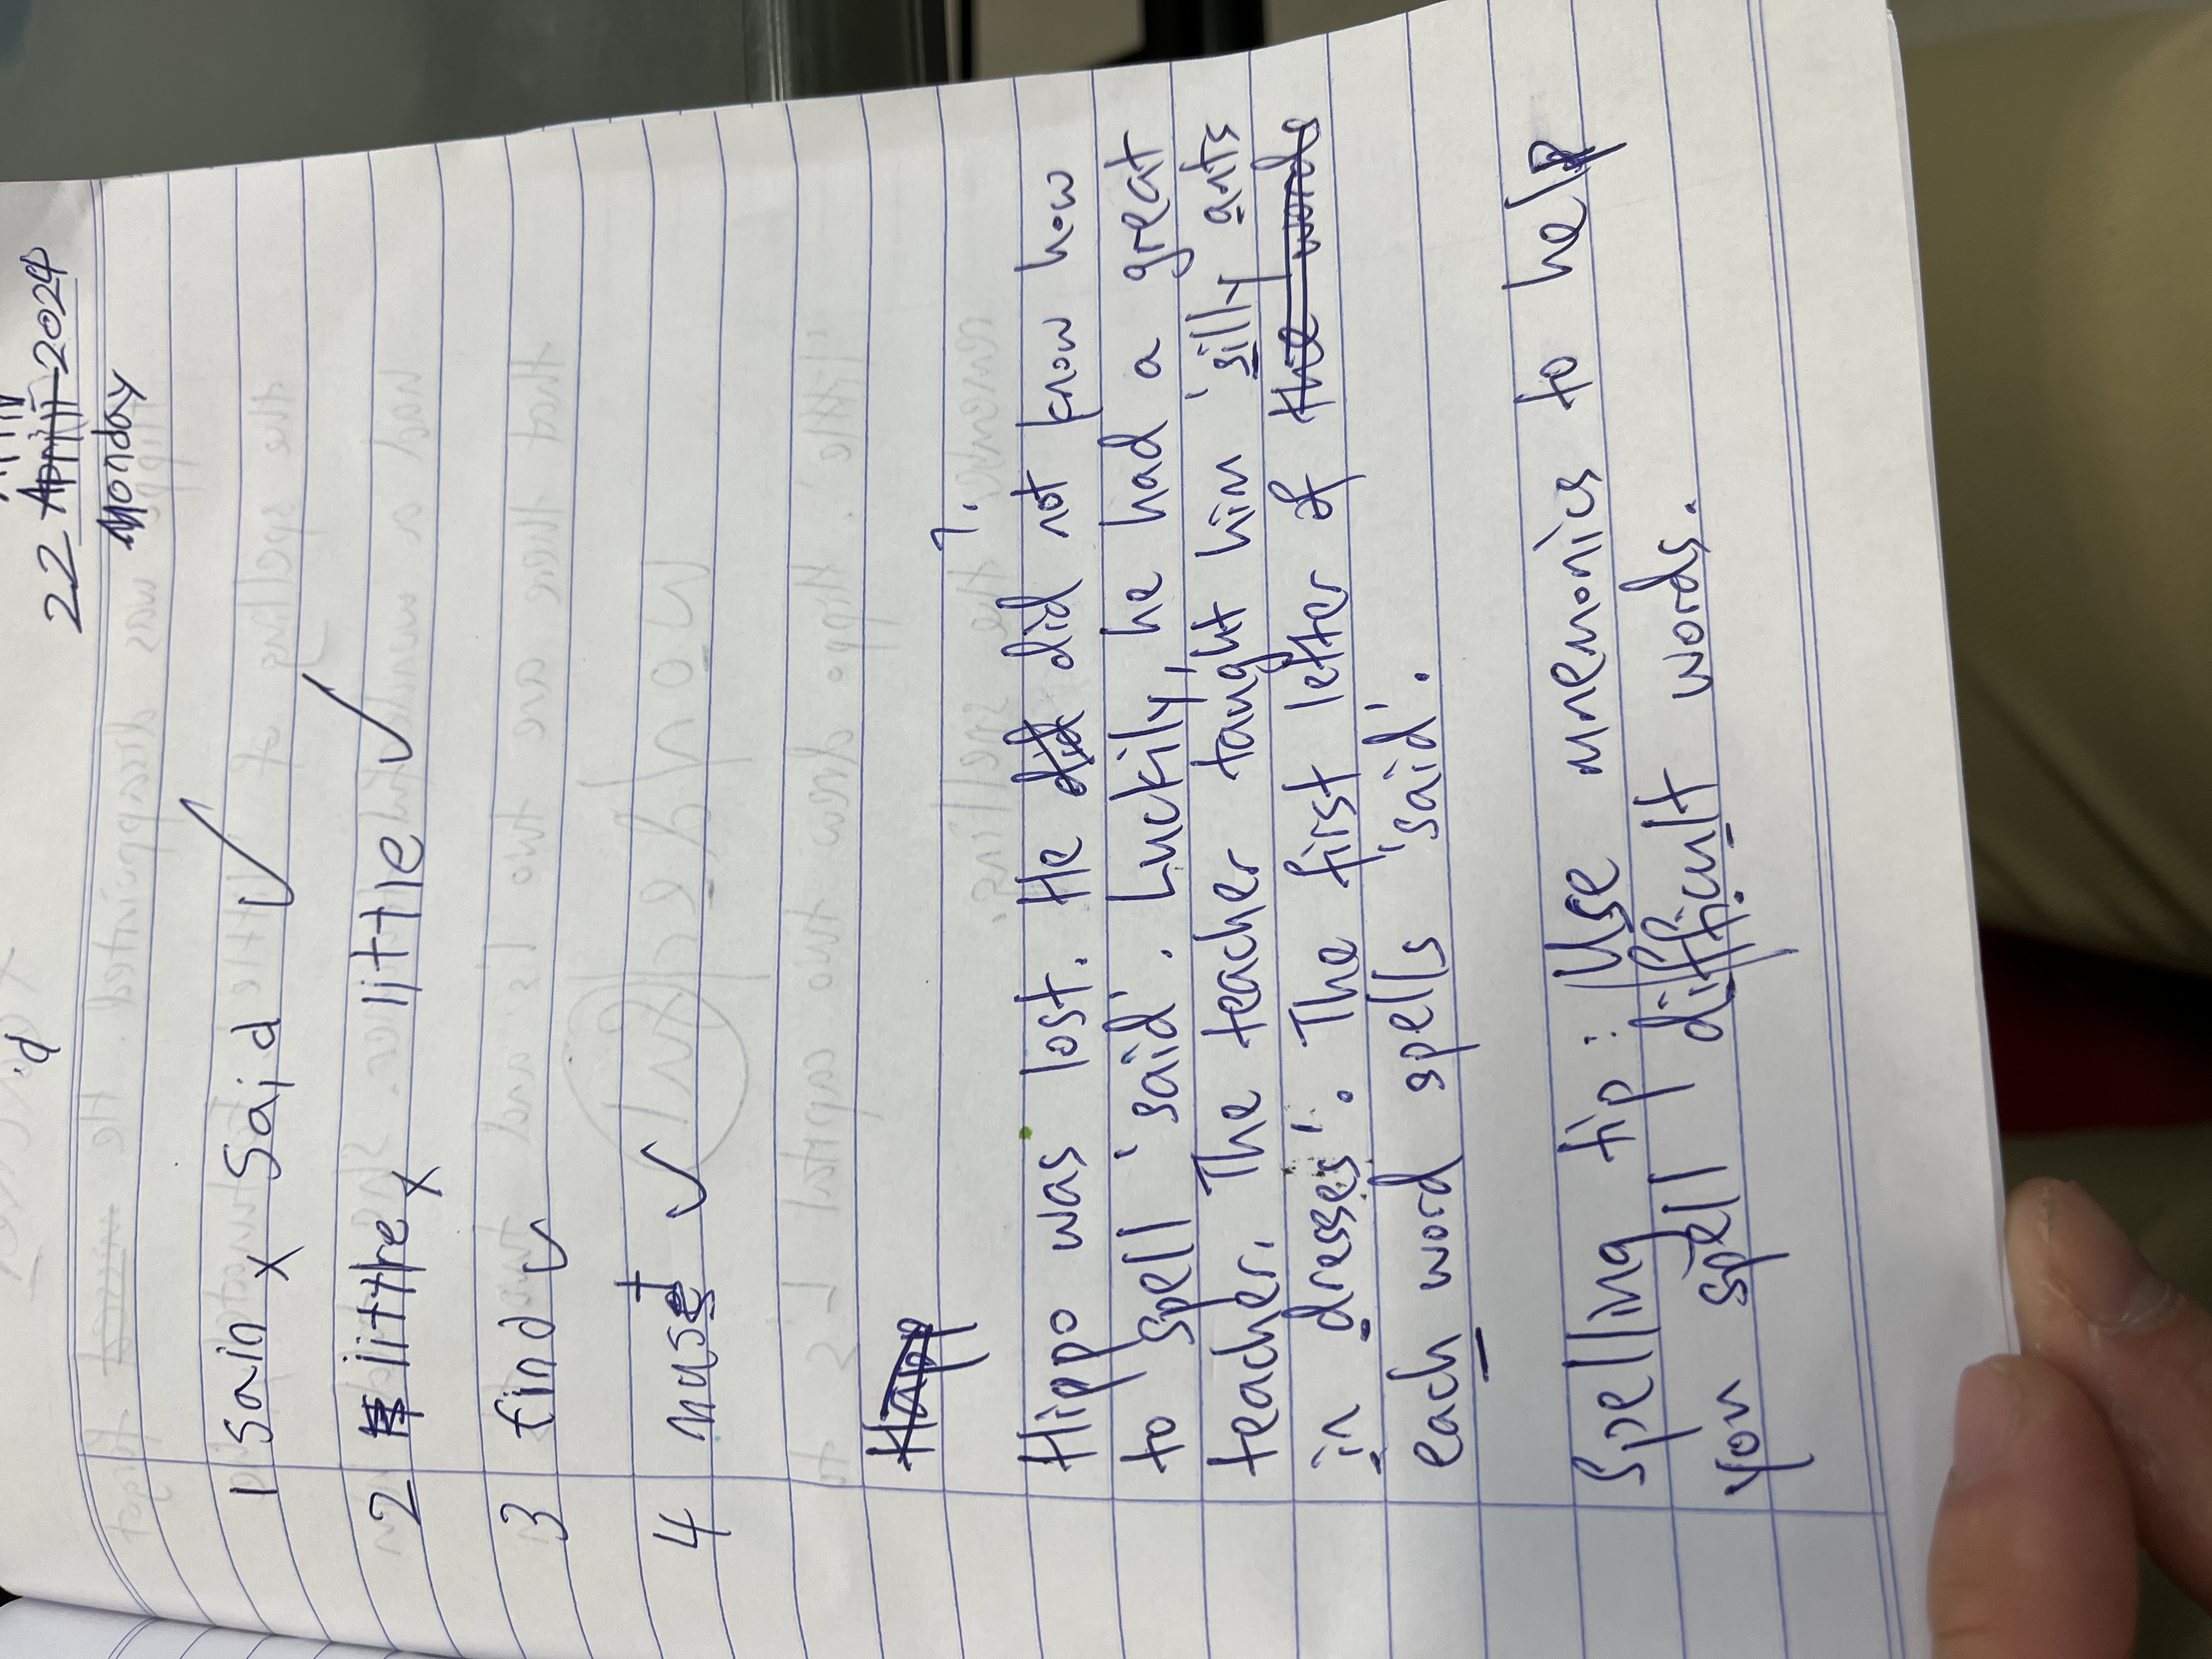 22 April 2024
Monday
1 sain x said ✓
2 littre x little ✓
3 find ✓
4 must ✓
Happ
7.
Hippo was lost. He did did not know how
to spell 'said'. Luckily, he had a great
teacher. The teacher taught him 'silly ants
in dresses'. The first letter of the words
each word spells 'said'.
Spelling tip: Use mnemonics to help
you spell difficult words.